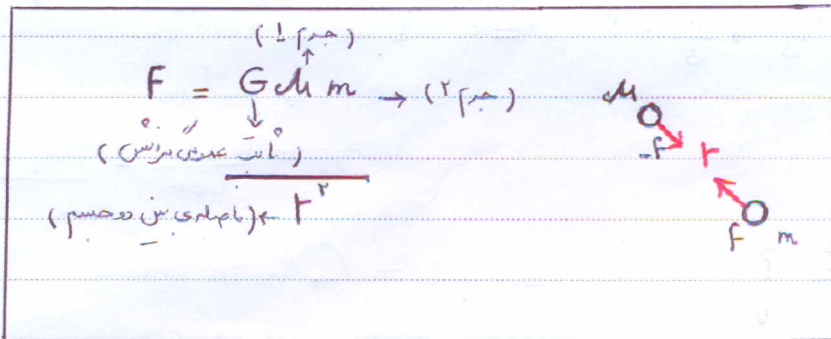 (جرم ۱)
F = G M m → (جرم ۲)
(ثابت عمومی گرانش)
r² ← (فاصله‌ی بین دو جسم)
M
-F r
F m